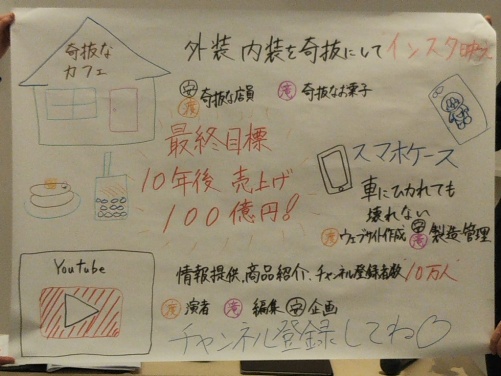 奇抜な
カフェ
外装 内装を奇抜にして インスタ映え
安 奇抜な店員
奇抜なお菓子
最終目標
10年後 売上げ
100億円!
スマホケース
車にひかれても
壊れない
ウェブサイト作成 安
製造管理
Youtube
情報提供、商品紹介、チャンネル登録者数 10万人
演者
編集 安 企画
チャンネル登録してね